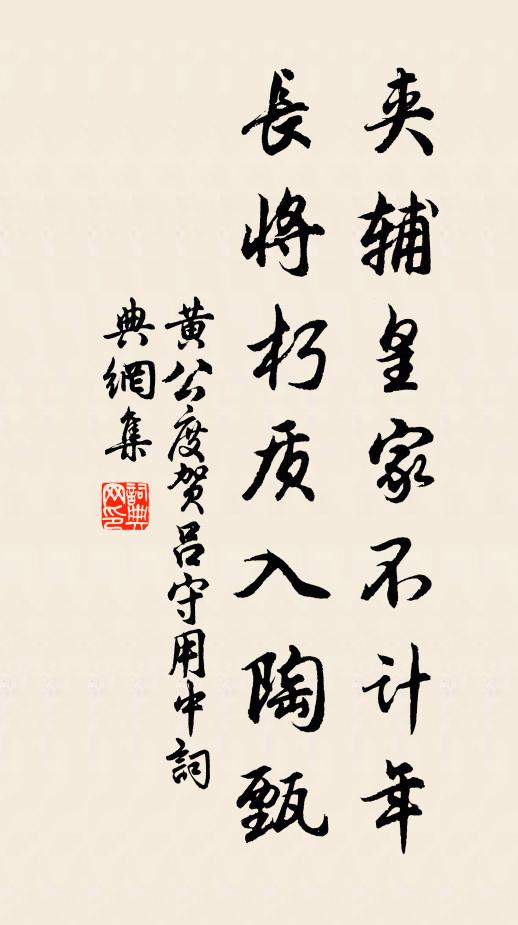 夹辅皇家不计年
長將朽质入陶甄
黄公度贺吕守用中詞
典網集
詞典网印